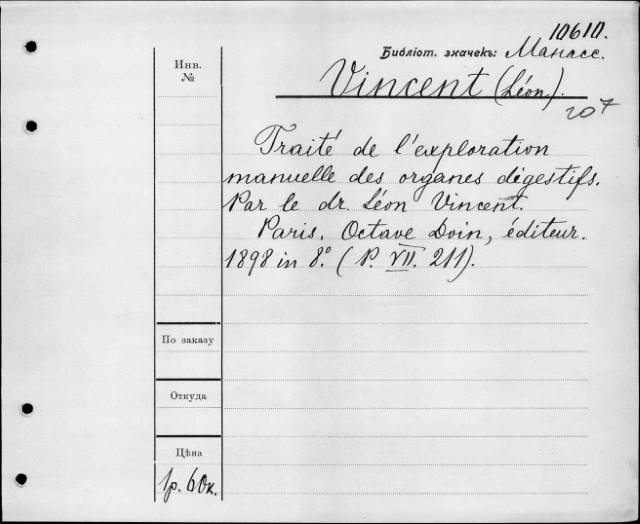 10610.
Библіот. значекъ: Манасс.
Инв. №
Vincent (Léon).
207
Traité de l'exploration
manuelle des organes digestifs.
Par le dr. Léon Vincent.
Paris, Octave Doin, éditeur.
1898 in 8.° (P. VII. 211).
По заказу
Откуда
Цѣна
1р. 60к.